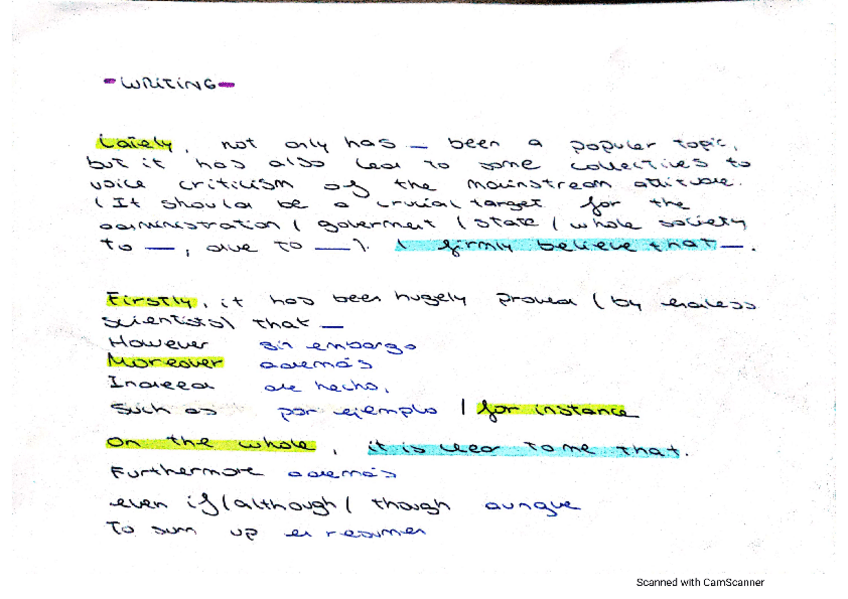 -WRITING-
Lately, not only has _ been a popular topic,
but it has also lead to some collectives to
voice criticism of the mainstream attitude.
(It should be a crucial target for the
administration / goverment / state / whole society
to __, due to __). I firmly believe that _.
Firstly, it has been hugely proved (by endless
scientists) that _
However sin embargo
Moreover además
Indeed de hecho,
Such as por ejemplo / for instance
On the whole, it is clear to me that.
Furthermore además
even if / although / though aunque
To sum up en resumen
Scanned with CamScanner